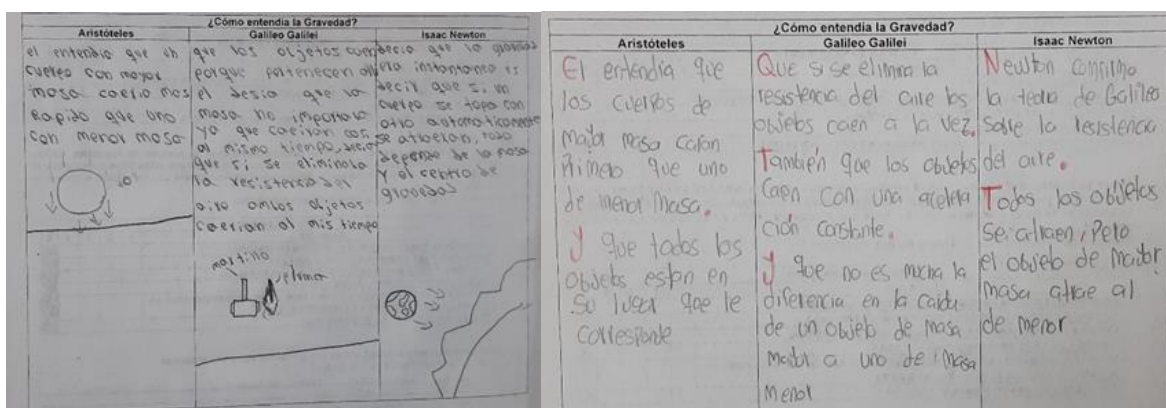 ¿Cómo entendia la Gravedad?
Aristóteles
el entendio que un
cuerpo con mayor
masa caeria mas
Rapido que uno
con menor masa
Galileo Galilei
que los objetos caen
porque pertenecen al
el desia que la
masa no importara
ya que caeiran cas
al mismo tiempo, decia
que si se eliminaba
la resistencia del
aire ambos objetos
caerian al mis tiempo
martillo
pluma
Isaac Newton
decia que la gravedad
era instantanea es
decir que si un
cuerpo se topa con
otro automaticamente
se atraeran, todo
depende de la masa
y el centro de
gravedad
¿Cómo entendia la Gravedad?
Aristóteles
El entendia que
los cuerpos de
maior masa caian
Primero que uno
de menor masa.
Y que todos los
objetos estan en
su lugar que le
corresponde
Galileo Galilei
Que si se elimina la
resistencia del aire los
objetos caen a la vez.
También que los objetos
caen con una acelera
ción constante.
Y que no es mucha la
diferencia en la caida
de un objeto de masa
maior a uno de masa
menor
Isaac Newton
Newton confirmo
la teoria de Galileo
Sobre la resistencia
del aire.
Todos los objetos
se atraen, Pero
el objeto de maior
masa atrae al
de menor